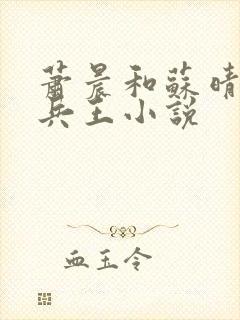 蕭晨和蘇晴
兵王小說
血玉令